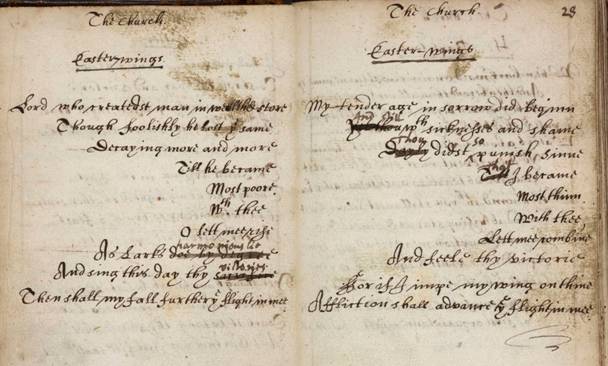 The Church.
Easter-wings
Lord who createdst man in wealth & store
Though foolishly he lost yᵉ same
Decaying more and more
Till he became
Most poore
Wᵗʰ thee
O lett mee rise
harmoniouslie
As Larks doe by degree
victories
And sing this day thy sacrifice
Then shall my fall further yᵉ flight in mee
The Church.
28
Easter-wings
My tender age in sorrow did beginn
And still
wᵗʰ sicknesses and shame
Thou so
didst punish sinne
That
I became
Most thinn
With thee
Lett mee combine
And feele thy victorie
For if I impe my wing on thine
Affliction shall advance yᵉ flight in mee